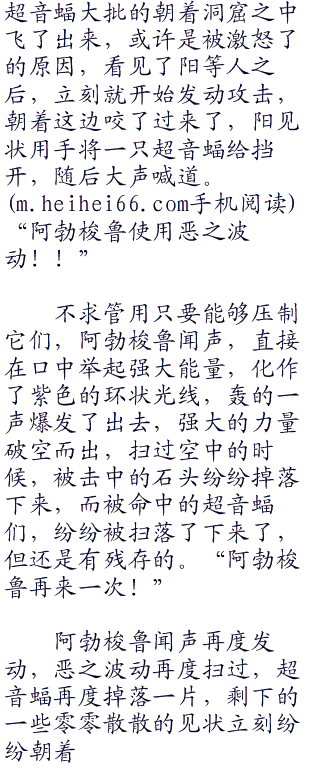 超音蝠大批的朝着洞窟之中
飞了出来，或许是被激怒了
的原因，看见了阳等人之
后，立刻就开始发动攻击，
朝着这边咬了过来了，阳见
状用手将一只超音蝠给挡
开，随后大声喊道。
(m.heihei66.com手机阅读)
“阿勃梭鲁使用恶之波
动！！”
不求管用只要能够压制
它们，阿勃梭鲁闻声，直接
在口中举起强大能量，化作
了紫色的环状光线，轰的一
声爆发了出去，强大的力量
破空而出，扫过空中的时
候，被击中的石头纷纷掉落
下来，而被命中的超音蝠
们，纷纷被扫落了下来了，
但还是有残存的。“阿勃梭
鲁再来一次！”
阿勃梭鲁闻声再度发
动，恶之波动再度扫过，超
音蝠再度掉落一片，剩下的
一些零零散散的见状立刻纷
纷朝着